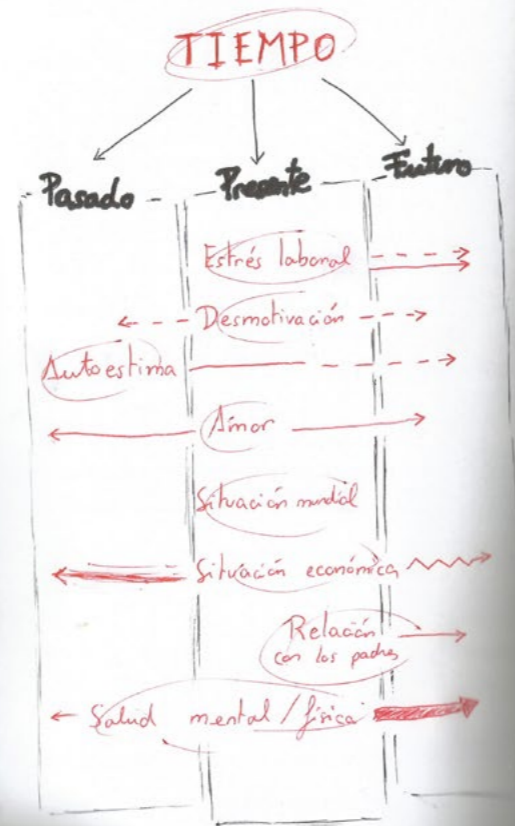 TIEMPO
Pasado
Presente
Futuro
Estrés laboral
Desmotivación
Autoestima
Amor
Situación mundial
Situación económica
Relación
con los padres
Salud mental / física